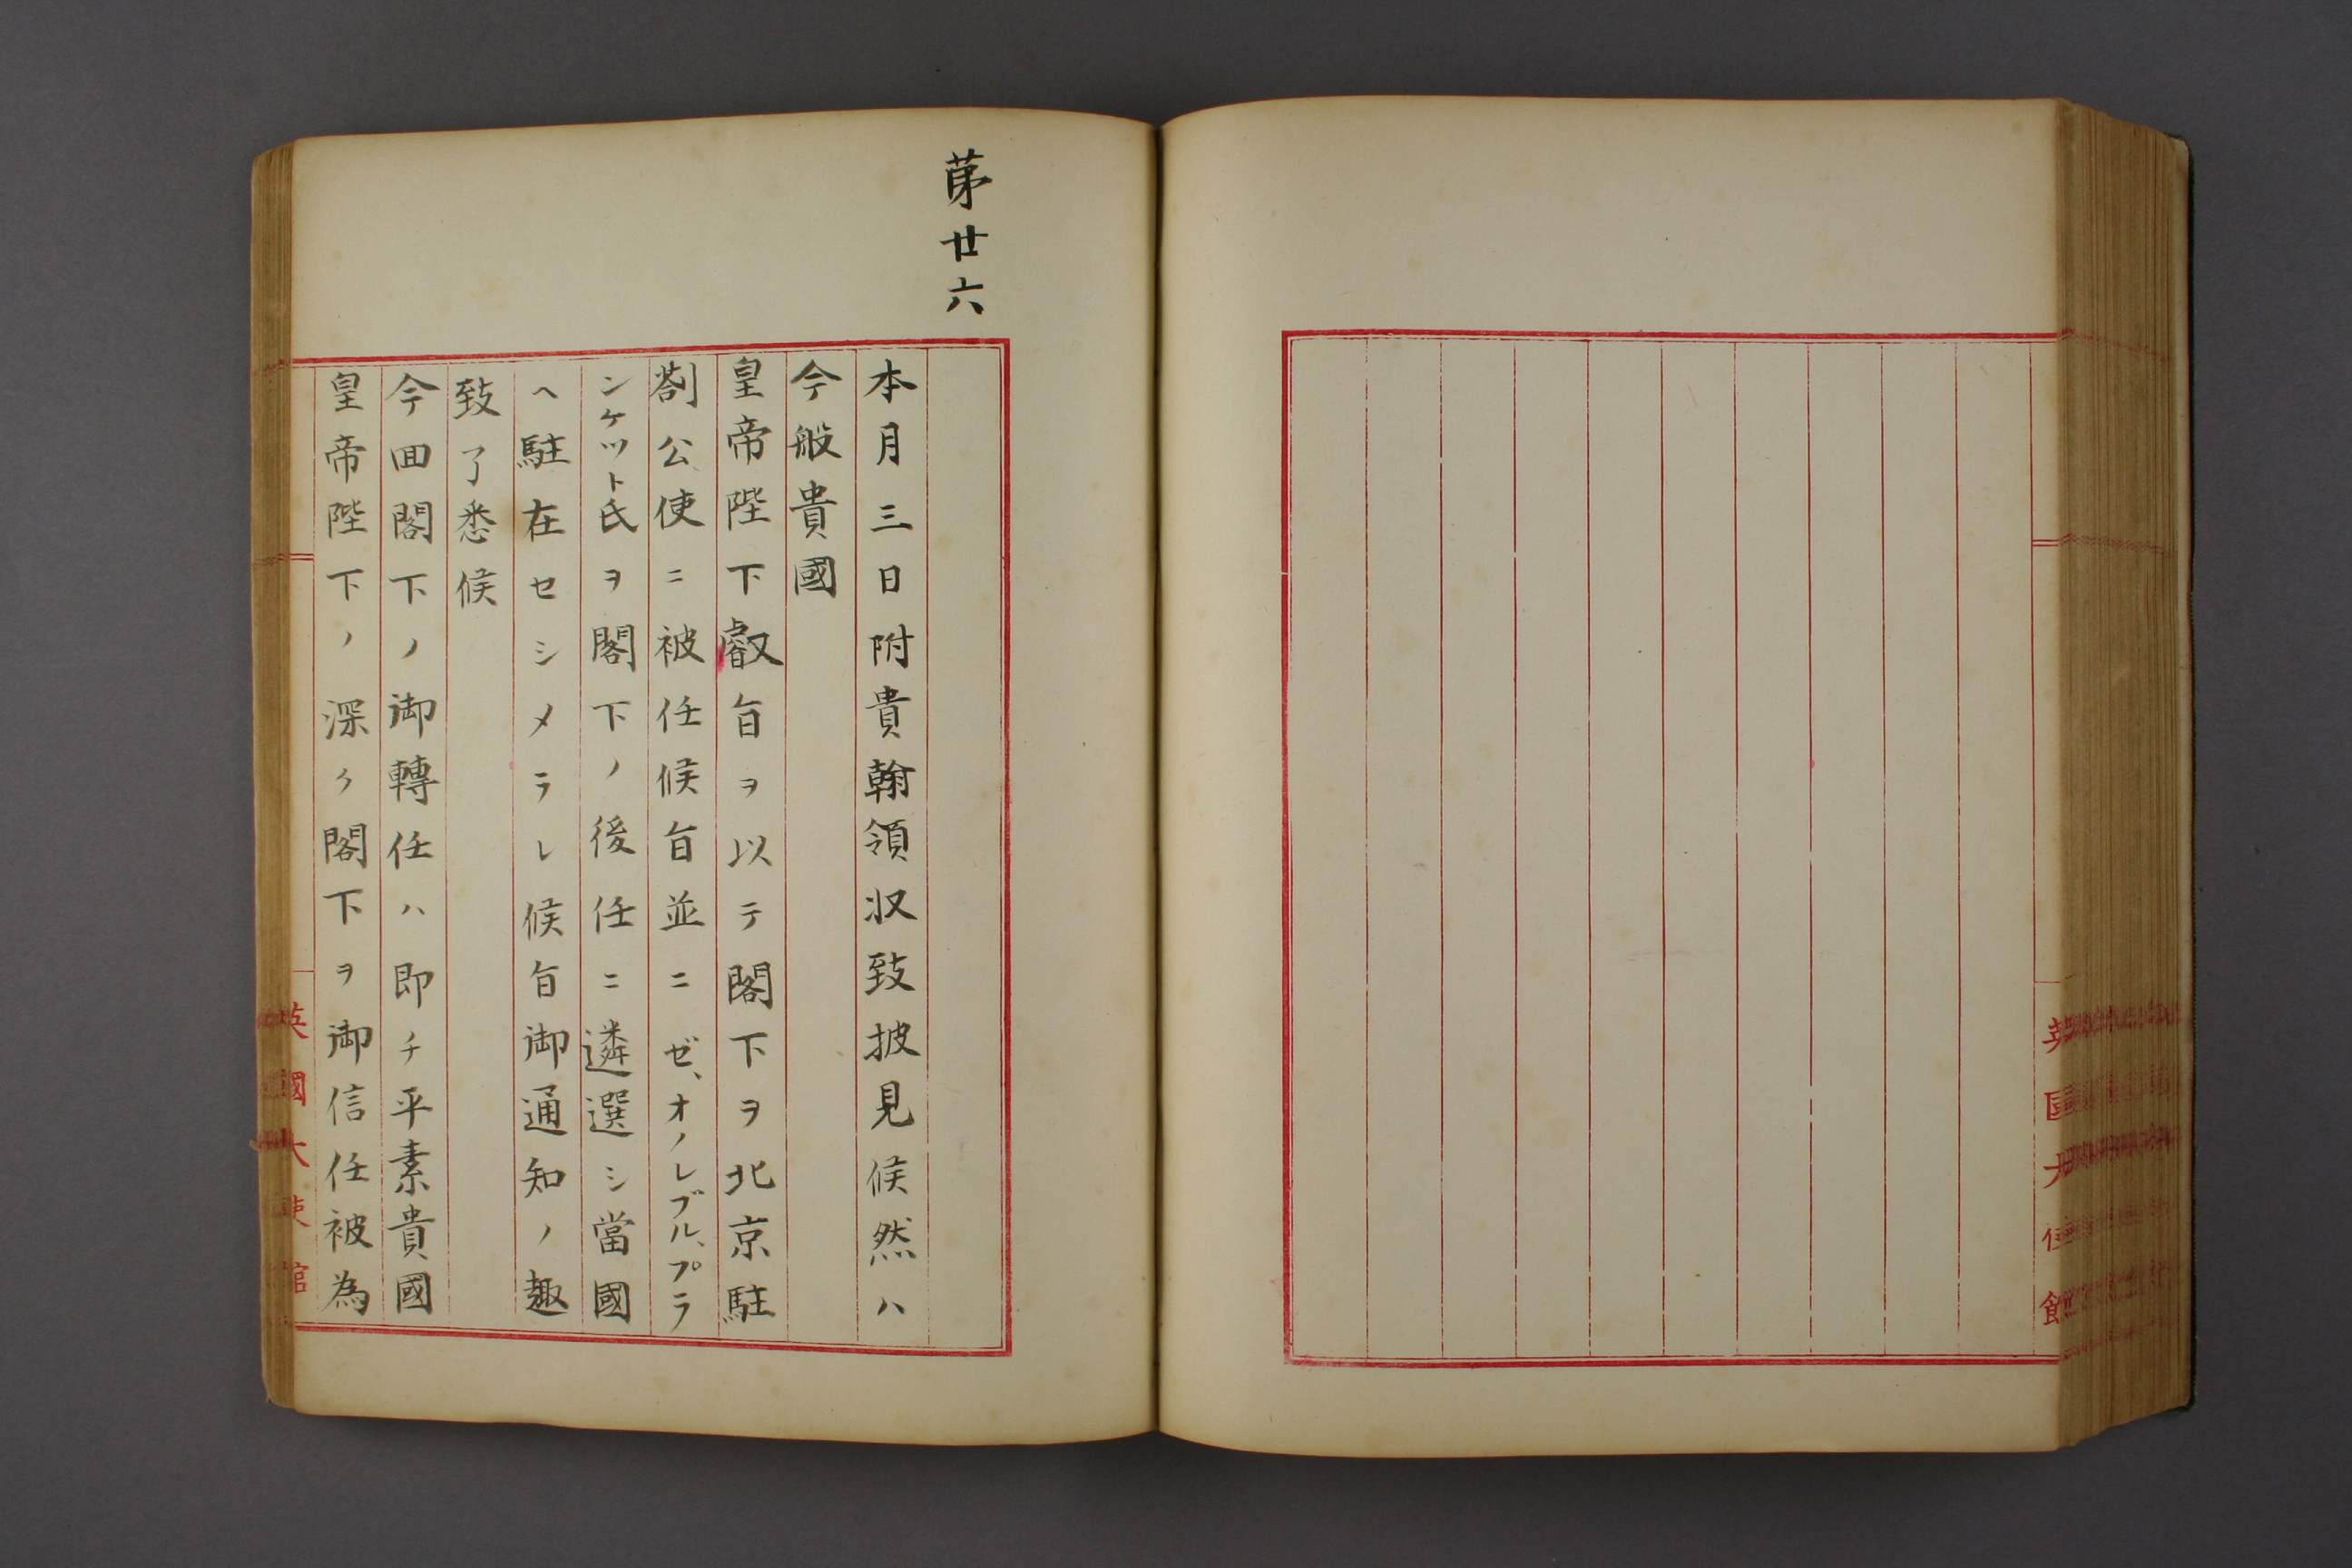 第廿六
本月三日附貴翰領収致披見候然ハ
今般貴國
皇帝陛下叡旨ヲ以テ閣下ヲ北京駐
劄公使ニ被任候旨並ニゼ、オノレブル、プラ
ンケット氏ヲ閣下ノ後任ニ遴選シ當國
ヘ駐在セシメラレ候旨御通知ノ趣
致了悉候
今回閣下ノ御轉任ハ即チ平素貴國
皇帝陛下ノ深ク閣下ヲ御信任被為
英國大使館